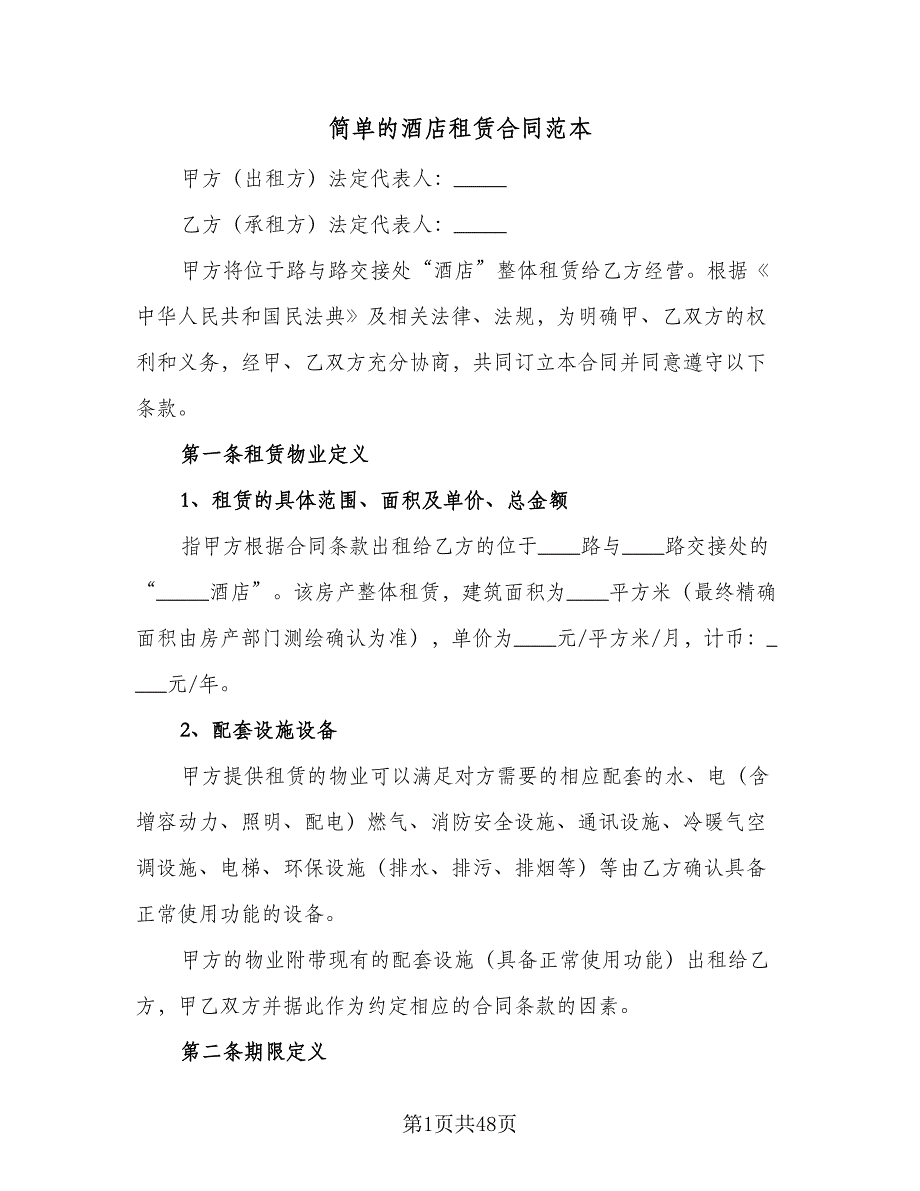 简单的酒店租赁合同范本
甲方（出租方）法定代表人：_____
乙方（承租方）法定代表人：_____
甲方将位于路与路交接处“酒店”整体租赁给乙方经营。根据《
中华人民共和国民法典》及相关法律、法规，为明确甲、乙双方的权
利和义务，经甲、乙双方充分协商，共同订立本合同并同意遵守以下
条款。
第一条租赁物业定义
1、租赁的具体范围、面积及单价、总金额
指甲方根据合同条款出租给乙方的位于____路与____路交接处的
“_____酒店”。该房产整体租赁，建筑面积为____平方米（最终精确
面积由房产部门测绘确认为准），单价为____元/平方米/月，计币：_
___元/年。
2、配套设施设备
甲方提供租赁的物业可以满足对方需要的相应配套的水、电（含
增容动力、照明、配电）燃气、消防安全设施、通讯设施、冷暖气空
调设施、电梯、环保设施（排水、排污、排烟等）等由乙方确认具备
正常使用功能的设备。
甲方的物业附带现有的配套设施（具备正常使用功能）出租给乙
方，甲乙双方并据此作为约定相应的合同条款的因素。
第二条期限定义
第1页共48页